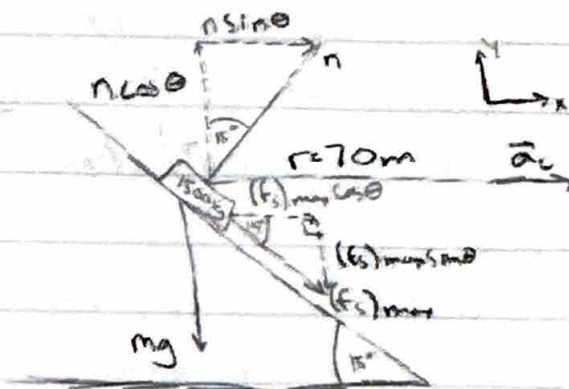 n sin θ
n
n cos θ
y
15°
x
r=70m
a̅c
1500kg
(fs)max cos θ
15°
(fs)max sin θ
(fs)max
mg
15°